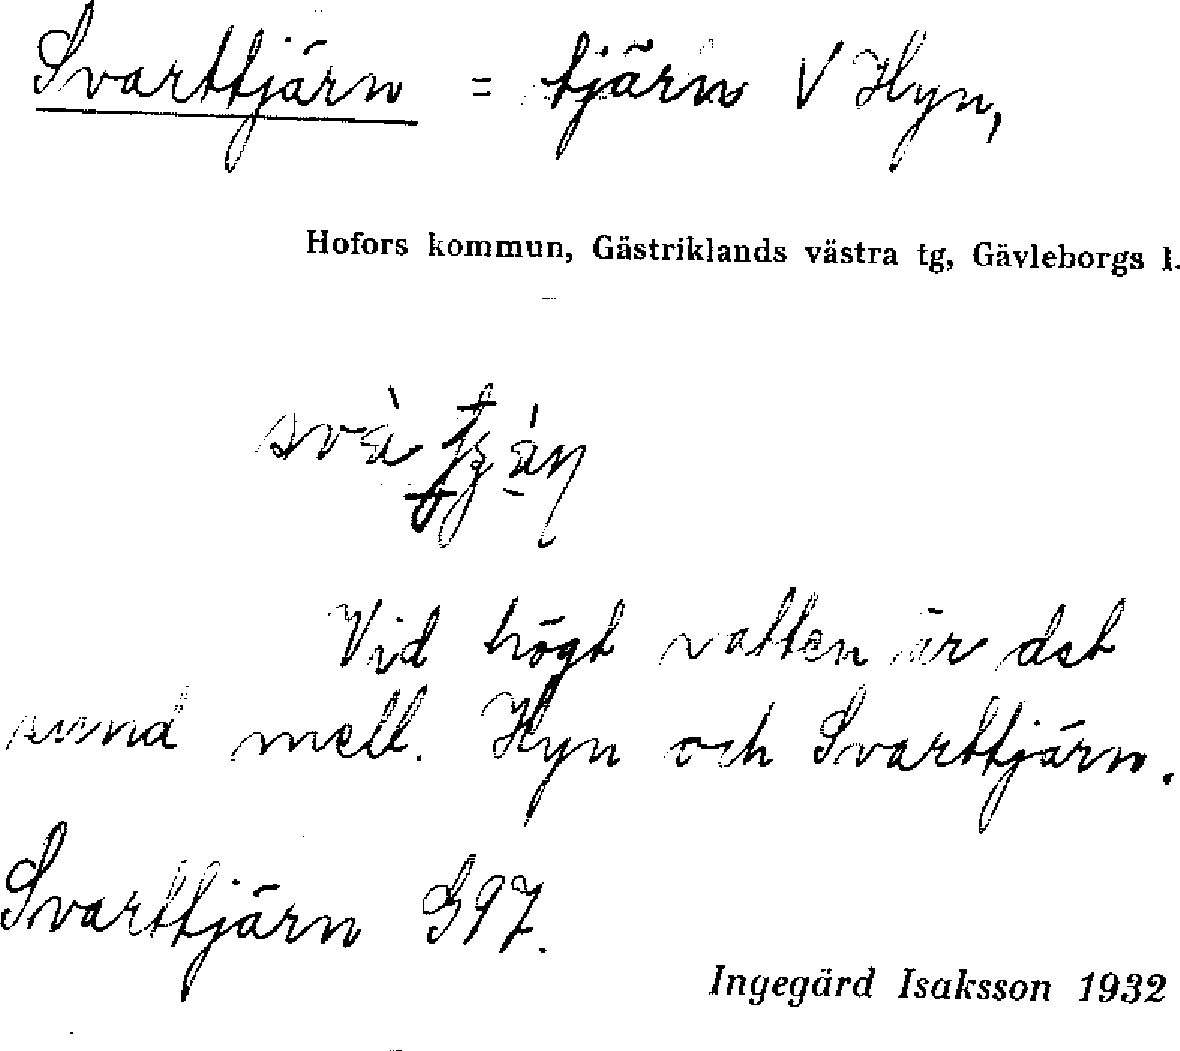 Svarttjärn = tjärn V Hyn,
Hofors kommun, Gästriklands västra tg, Gävleborgs l.
Vid högt vatten är det
sund mell. Hyn och Svarttjärn.
Svarttjärn G97.
Ingegärd Isaksson 1932